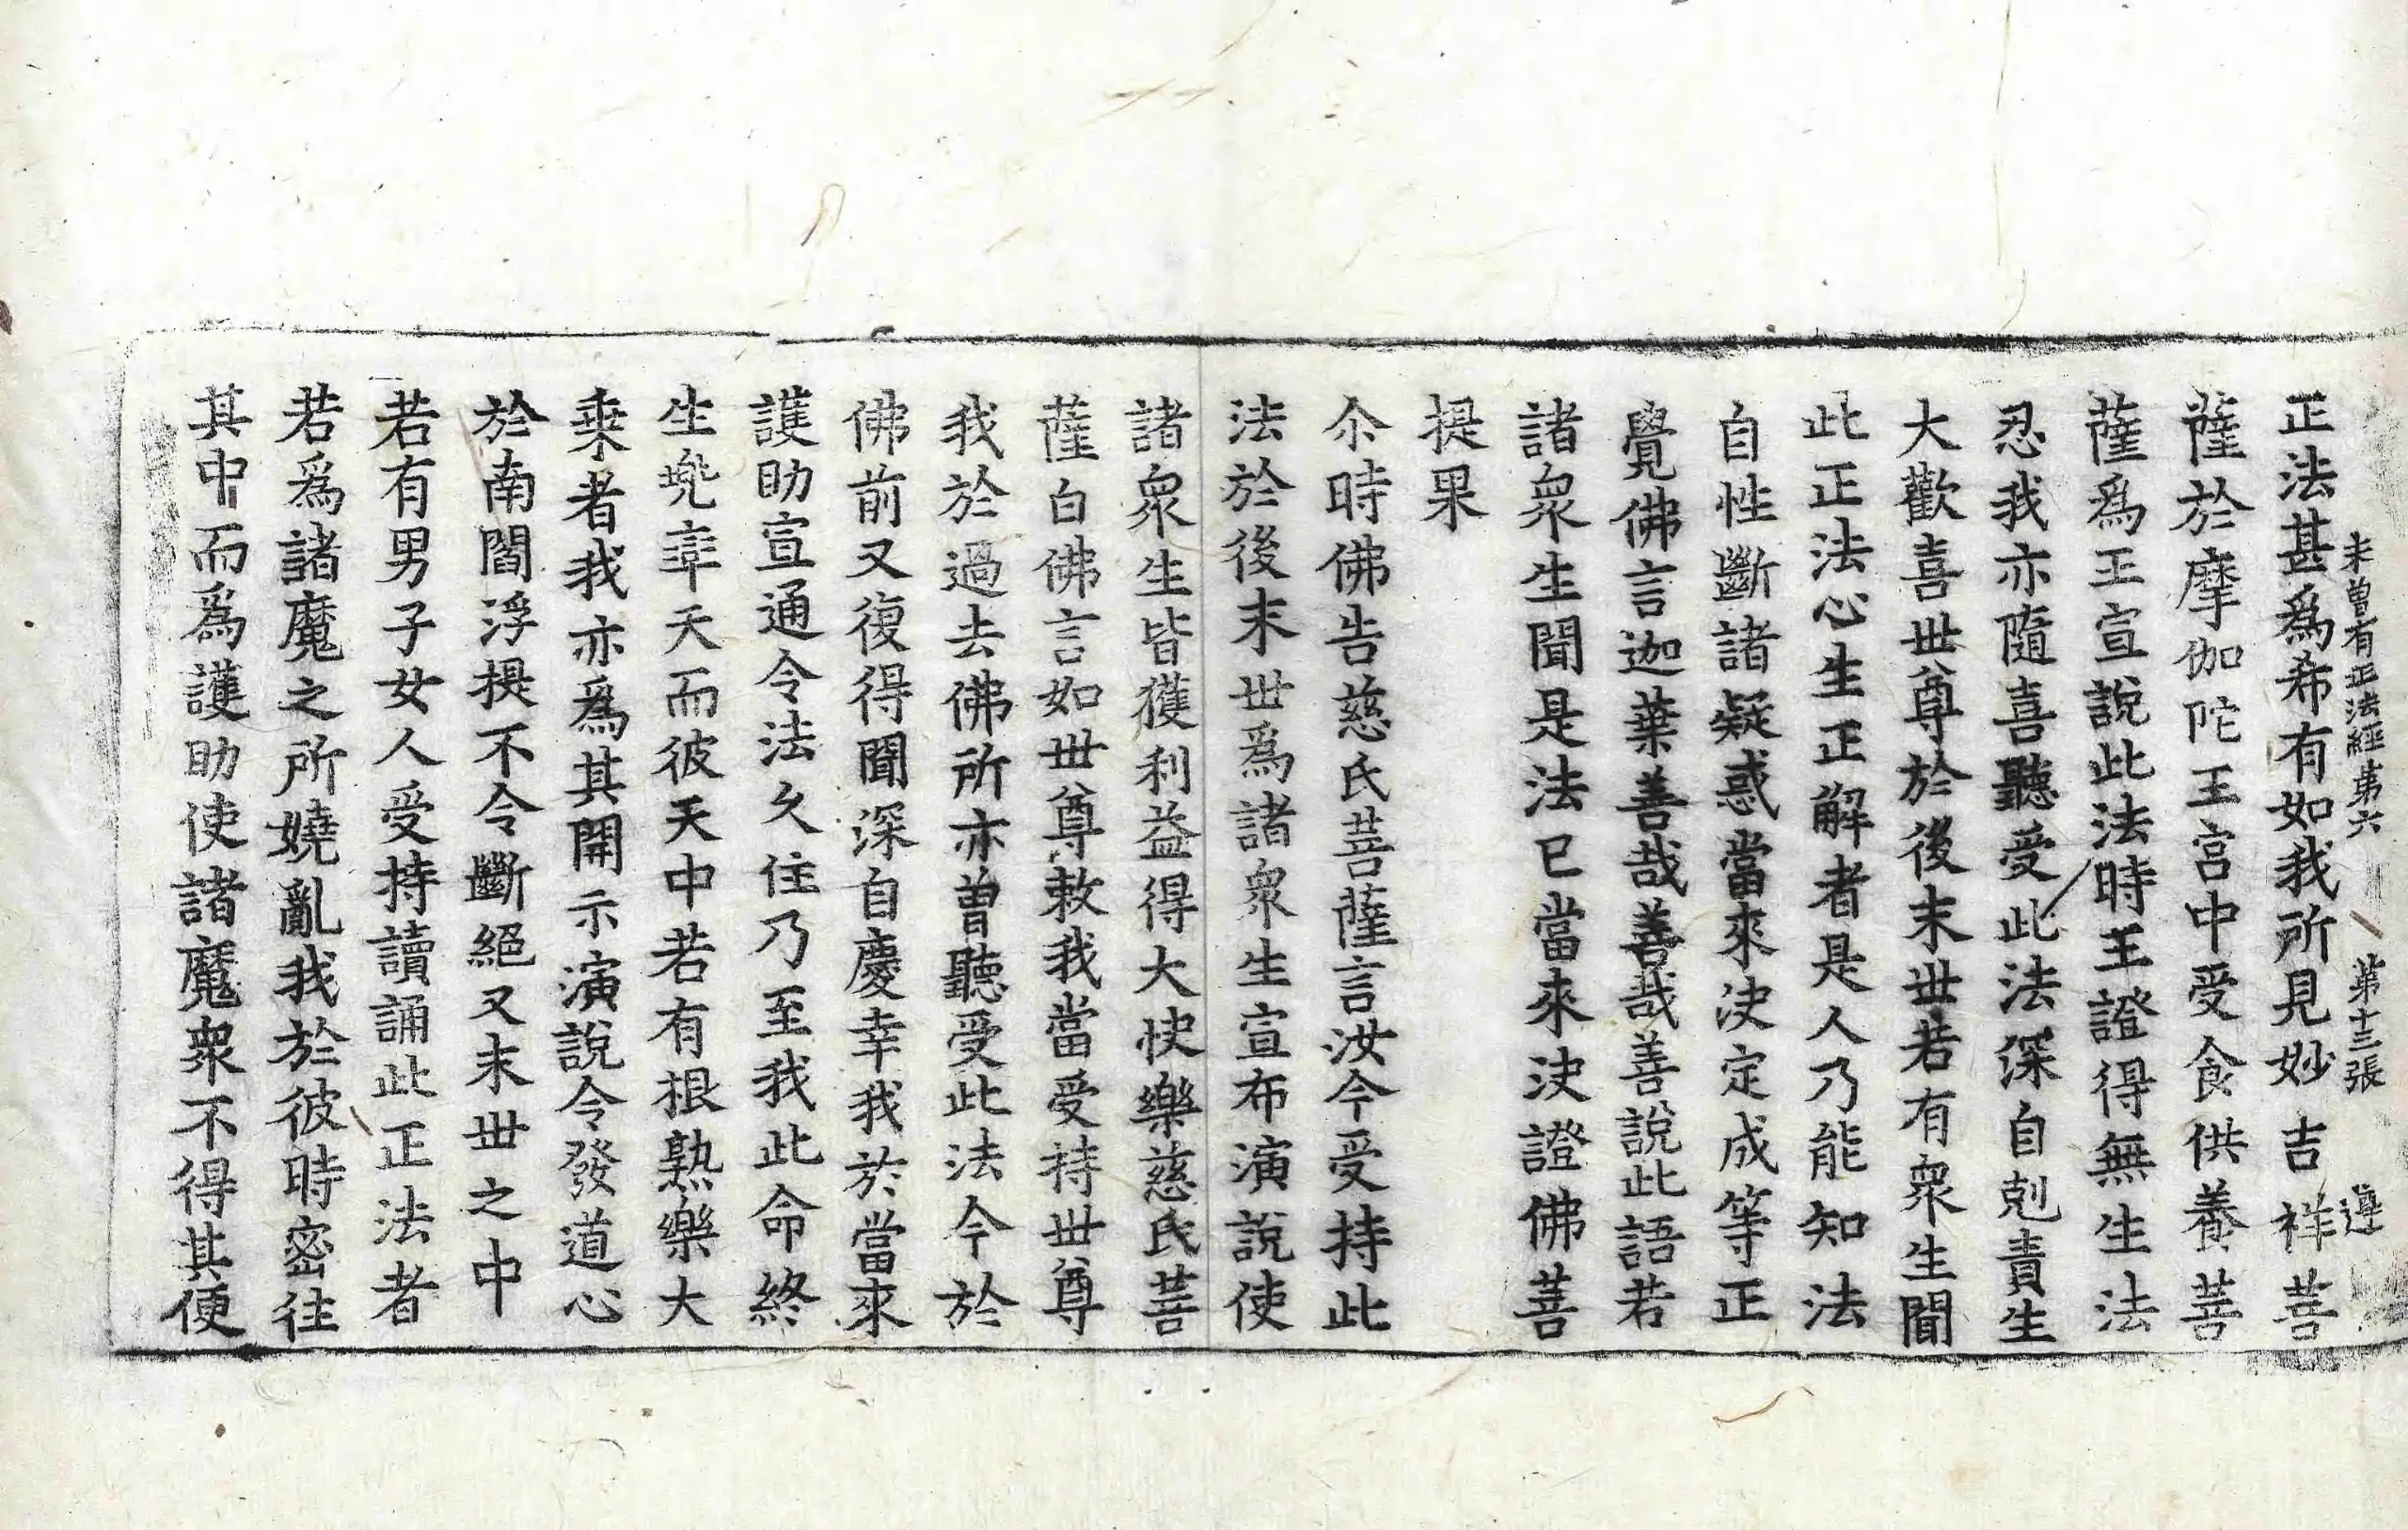 未曾有正法經第六 第十三張 遵
正法甚爲希有如我所見妙吉祥菩
薩於摩伽陀王宮中受食供養菩
薩爲王宣說此法時王證得無生法
忍我亦隨喜聽受此法深自剋責生
大歡喜世尊於後末世若有衆生聞
此正法心生正解者是人乃能知法
自性斷諸疑惑當來决定成等正
覺佛言迦葉善哉善哉善說此語若
諸衆生聞是法已當來决證佛菩
提果
尒時佛告慈氏菩薩言汝今受持此
法於後末世爲諸衆生宣布演說使
諸衆生皆獲利益得大快樂慈氏菩
薩白佛言如世尊敕我當受持世尊
我於過去佛所亦曾聽受此法今於
佛前又復得聞深自慶幸我於當來
護助宣通令法久住乃至我此命終
生兠率天而彼天中若有根熟樂大
乘者我亦爲其開示演說令發道心
於南閻浮提不令斷絕又末世之中
若有男子女人受持讀誦此正法者
若爲諸魔之所嬈亂我於彼時密往
其中而爲護助使諸魔衆不得其便